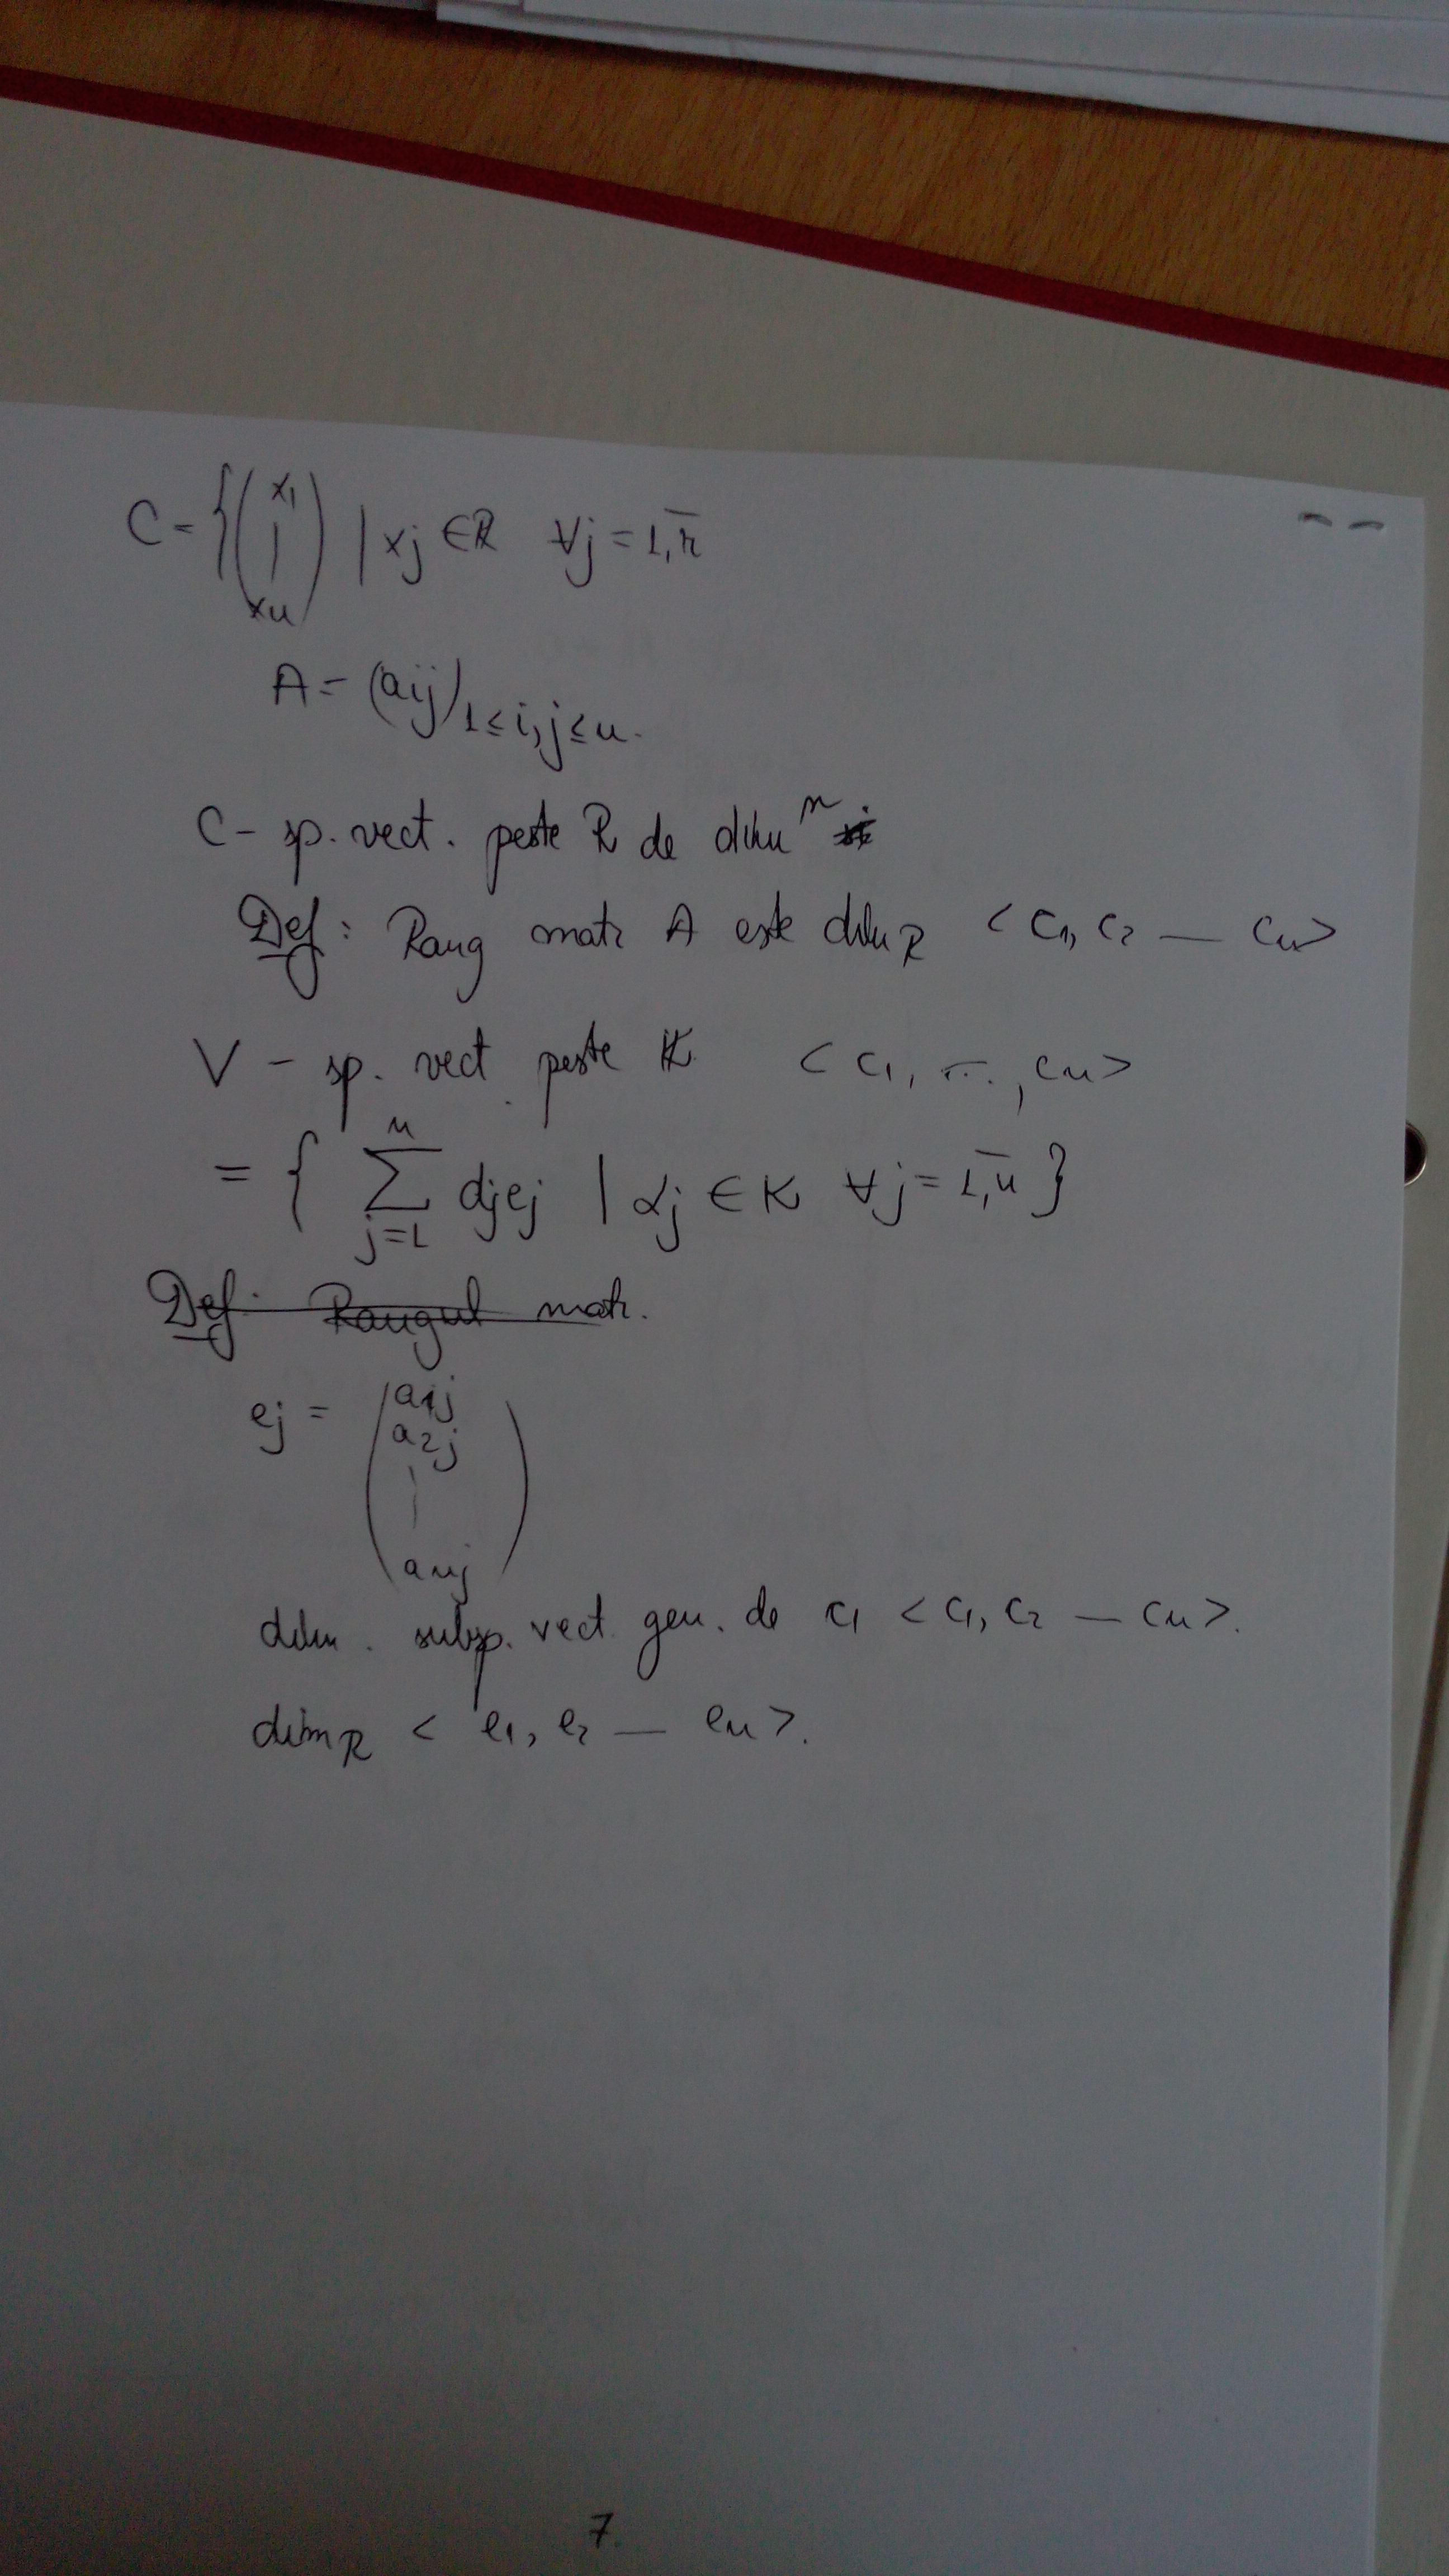 C = { ( x1 | xn ) | xj ∈ R ∀j = 1,n̄
A = (aij) 1≤i,j≤n.
C - sp. vect. peste R de dim n
Def: Rang matr A este dim R < c1, c2 — cn >
V - sp. vect peste K < c1, ..., cn >
= { n ∑ j=1 αjej | αj ∈ K ∀j = 1,n̄ }
Def: Rangul matr.
ej = ( a1j
a2j
|
anj )
dim. subsp. vect. gen. de c1 < c1, c2 — cn >.
dim R < e1, e2 — en >.
7.